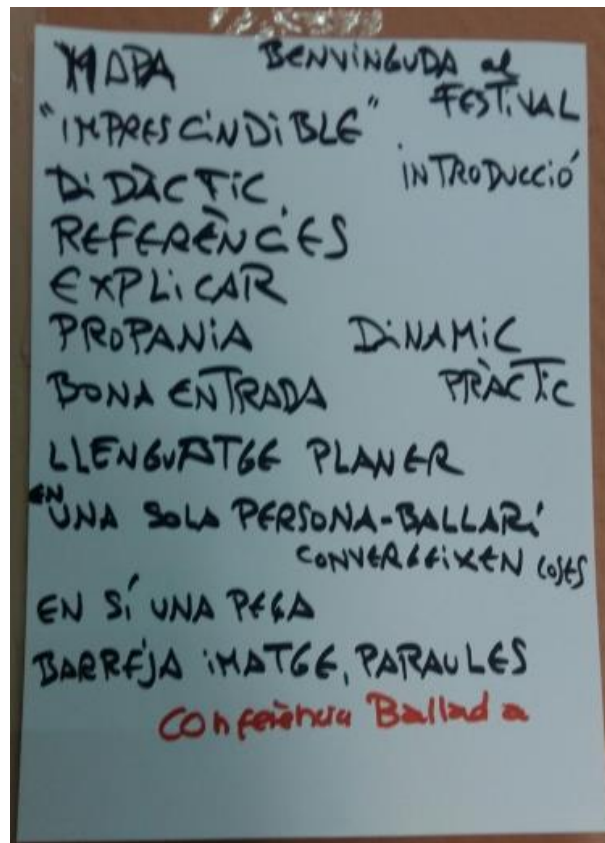 MAPA BENVINGUDA al
FESTIVAL
"IMPRESCINDIBLE"
INTRODUCCIÓ
DIDÀCTIC
REFERÈNCIES
EXPLICAR
PROPANIA DINAMIC
BONA ENTRADA PRÀCTIC
LLENGUATGE PLANER
EN UNA SOLA PERSONA-BALLARÍ
CONVERGEIXEN COSES
EN SÍ UNA PEÇA
BARREJA IMATGE, PARAULES
Conferència Ballada